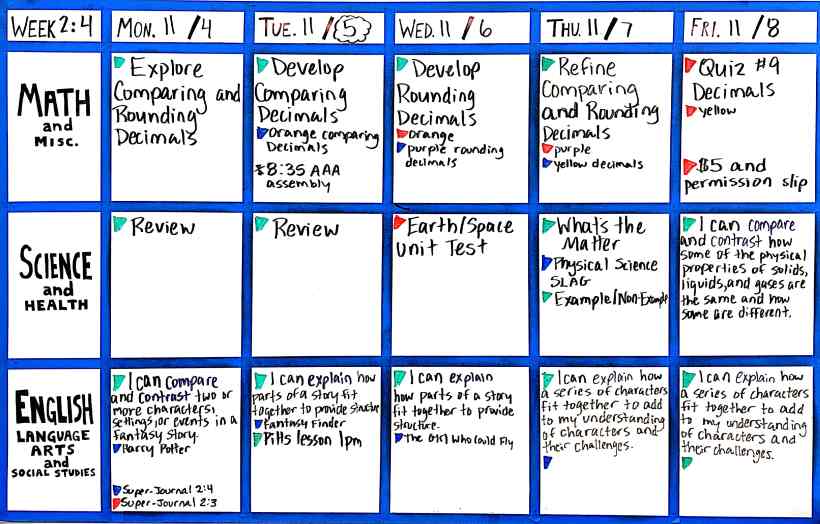 WEEK 2:4
MON. 11/4
TUE. 11/5
WED. 11/6
THU. 11/7
FRI. 11/8
MATH
and
MISC.
Explore
Comparing and
Rounding
Decimals
Develop
Comparing
Decimals
Orange comparing
Decimals
*8:35 AAA
assembly
Develop
Rounding
Decimals
orange
purple rounding
decimals
Refine
Comparing
and Rounding
Decimals
purple
yellow decimals
Quiz #9
Decimals
yellow
$5 and
permission slip
SCIENCE
and
HEALTH
Review
Review
Earth/Space
Unit Test
What's the
Matter
Physical Science
SLAG
Example/Non-Example
I can compare
and contrast how
some of the physical
properties of solids,
liquids, and gases are
the same and how
some are different.
ENGLISH
LANGUAGE
ARTS
and
SOCIAL STUDIES
I can compare
and contrast two or
more characters,
settings, or events in a
fantasy story.
Harry Potter
Super-Journal 2:4
Super-Journal 2:3
I can explain how
parts of a story fit
together to provide structure
Fantasy Finder
Pitts lesson 1pm
I can explain
how parts of a story
fit together to provide
structure.
The Girl Who Could Fly
I can explain how
a series of characters
fit together to add
to my understanding
of characters and
their challenges.
I can explain how
a series of characters
fit together to add
to my understanding
of characters and
their challenges.